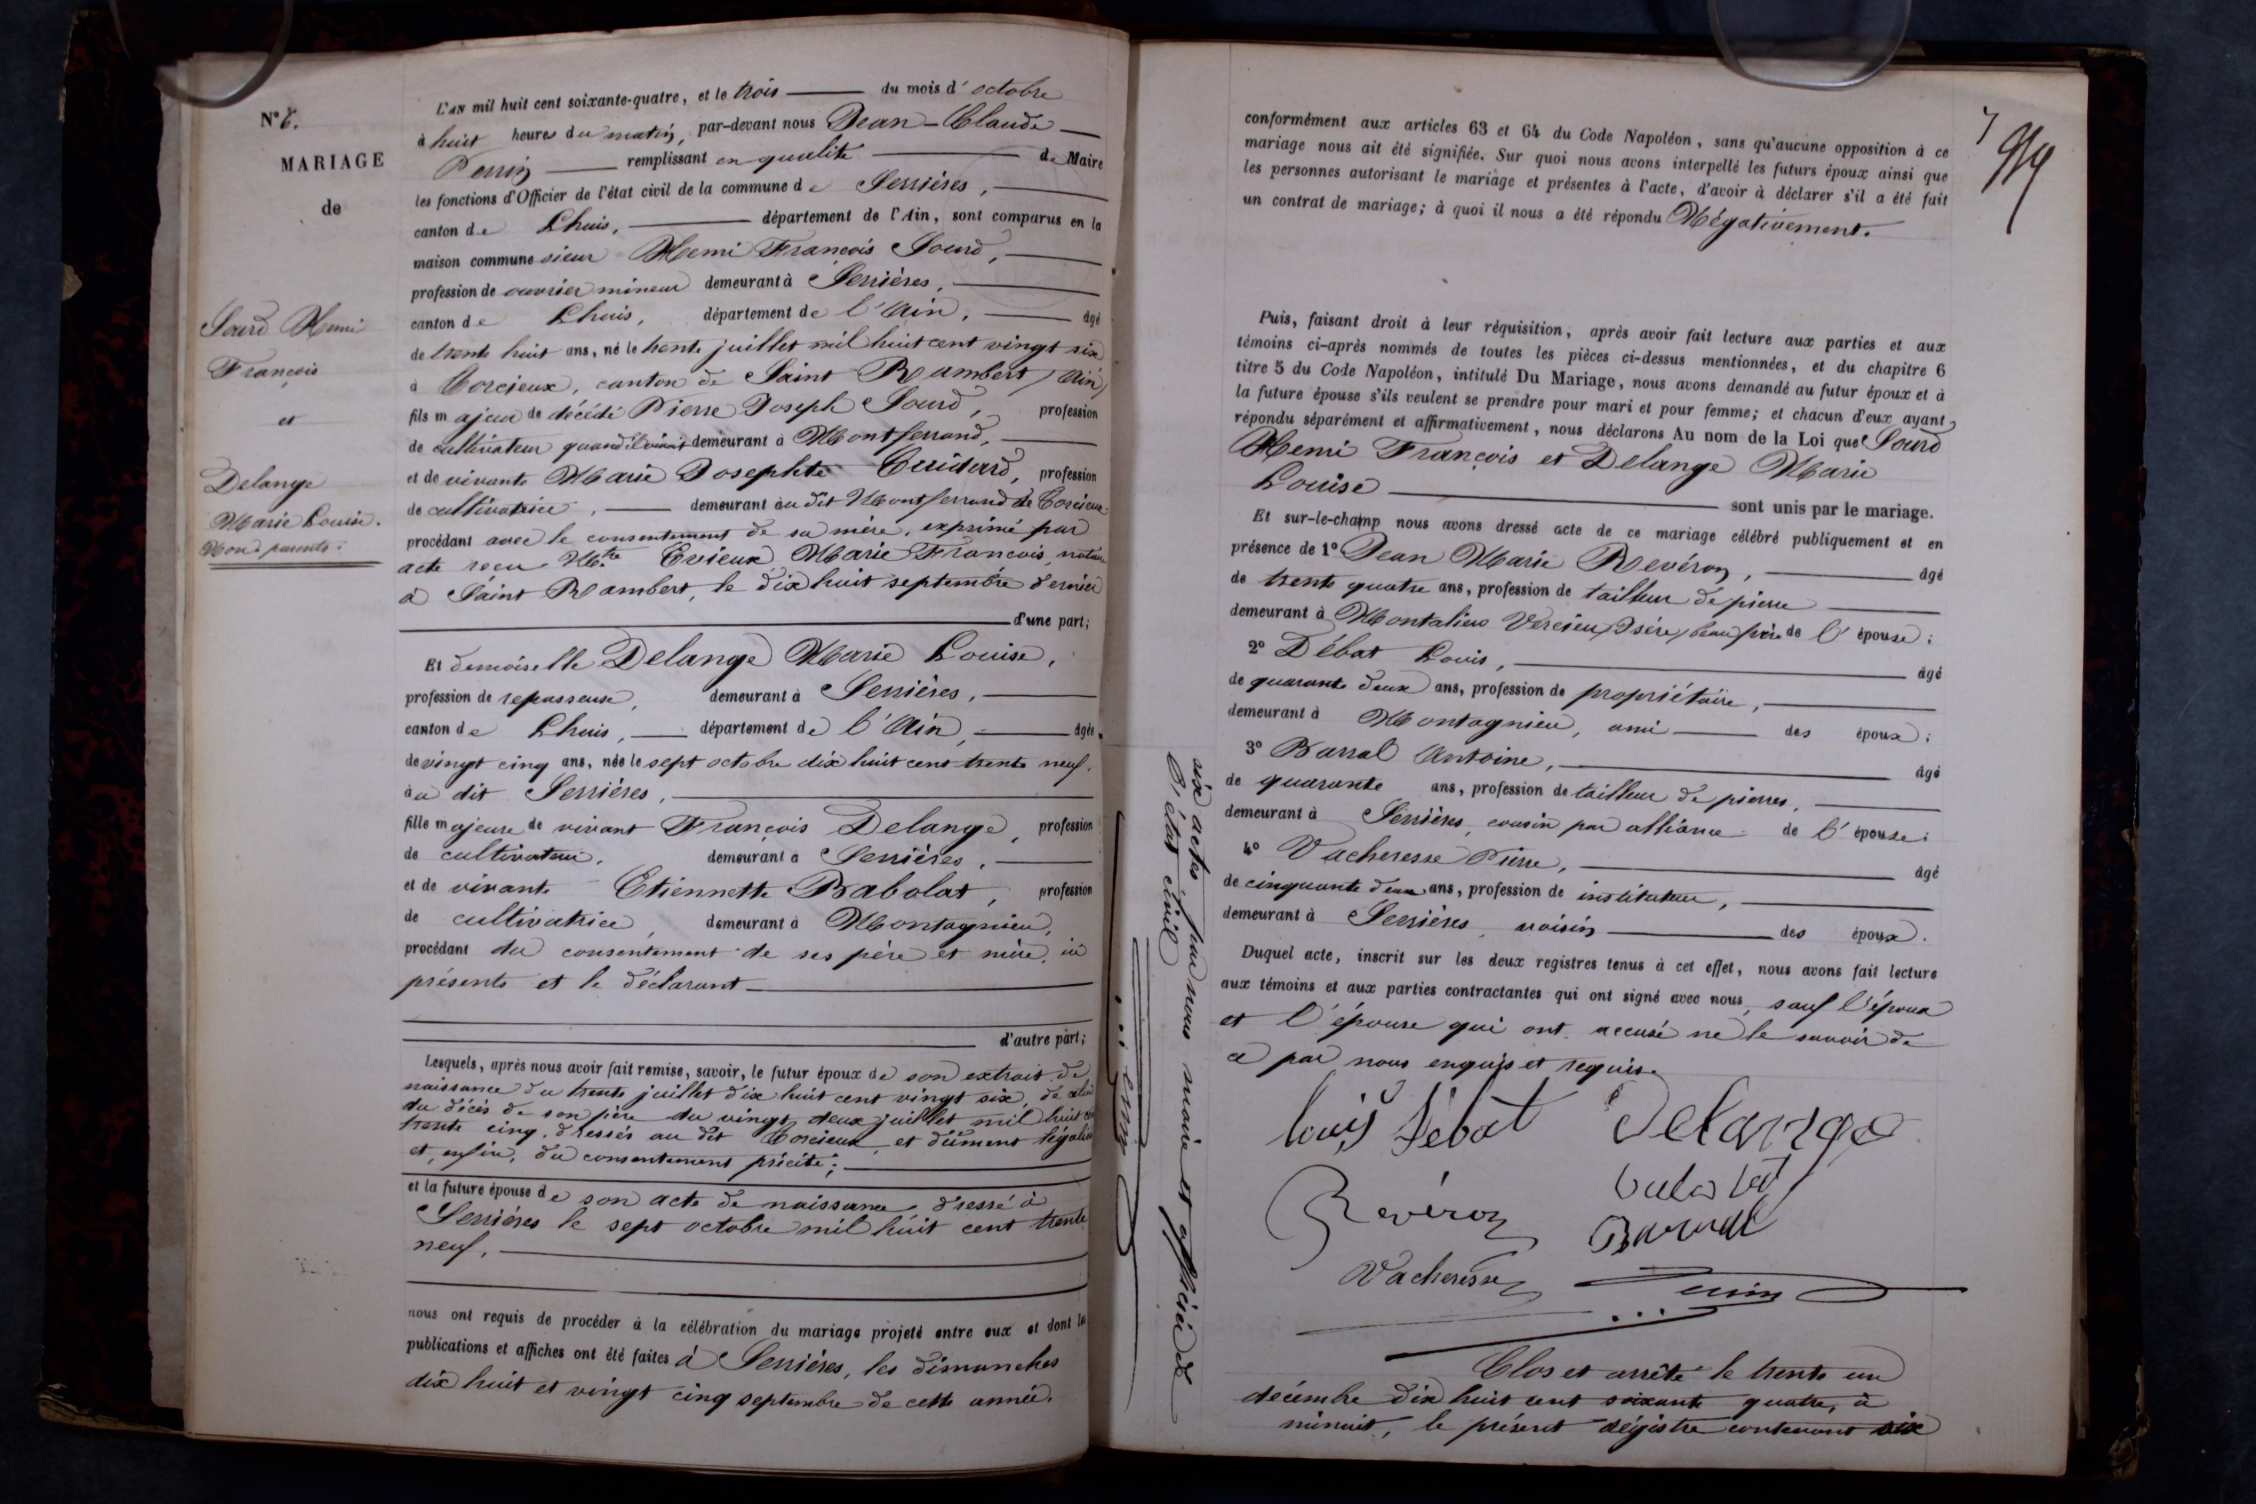 N° 6.
MARIAGE
de
Sourd Hemi
François
et
Delange
Marie Louise.
Non parents.
L'AN mil huit cent soixante-quatre, et le trois du mois d'octobre
à huit heures du matin, par-devant nous Jean-Claude
Perrin remplissant en qualité de Maire
les fonctions d'Officier de l'état civil de la commune de Serrières,
canton de Lhuis, département de l'Ain, sont comparus en la
maison commune sieur Hemi François Sourd,
profession de ouvrier mineur demeurant à Serrières,
canton de Lhuis, département de l'Ain, âgé
de trente huit ans, né le trente juillet mil huit cent vingt six
à Torcieux, canton de Saint Rambert (Ain)
fils majeur de décédé Pierre Joseph Sourd, profession
de cultivateur quand il vivait demeurant à Montferrand,
et de vivante Marie Josephte Cuidard, profession
de cultivatrice, demeurant au dit Montferrand de Torcieux
procédant avec le consentement de sa mère, exprimé par
acte reçu Mtre Evieux Marie François, notaire
à Saint Rambert, le dix huit septembre dernier
d'une part;
Et demoiselle Delange Marie Louise,
profession de repasseuse, demeurant à Serrières,
canton de Lhuis, département de l'Ain, âgée
de vingt cinq ans, née le sept octobre dix huit cent trente neuf,
au dit Serrières,
fille majeure de vivant François Delange, profession
de cultivateur, demeurant à Serrières,
et de vivante Etiennette Babolat, profession
de cultivatrice, demeurant à Montagnieu,
procédant du consentement de ses père et mère, ici
présents et le déclarant
d'autre part;
Lesquels, après nous avoir fait remise, savoir, le futur époux de son extrait de
naissance du trente juillet dix huit cent vingt six, de celui
du décès de son père du vingt deux juillet mil huit cent
trente cinq, dressés au dit Torcieux, et dûment légalisés
et, enfin, du consentement précité;
et la future épouse de son acte de naissance dressé à
Serrières le sept octobre mil huit cent trente
neuf,
nous ont requis de procéder à la célébration du mariage projeté entre eux et dont les
publications et affiches ont été faites à Serrières, les dimanches
dix huit et vingt cinq septembre de cette année.
7
conformément aux articles 63 et 64 du Code Napoléon, sans qu'aucune opposition à ce
mariage nous ait été signifiée. Sur quoi nous avons interpellé les futurs époux ainsi que
les personnes autorisant le mariage et présentes à l'acte, d'avoir à déclarer s'il a été fait
un contrat de mariage; à quoi il nous a été répondu Négativement.
Puis, faisant droit à leur réquisition, après avoir fait lecture aux parties et aux
témoins ci-après nommés de toutes les pièces ci-dessus mentionnées, et du chapitre 6
titre 5 du Code Napoléon, intitulé Du Mariage, nous avons demandé au futur époux et à
la future épouse s'ils veulent se prendre pour mari et pour femme; et chacun d'eux ayant
répondu séparément et affirmativement, nous déclarons Au nom de la Loi que Sourd
Hemi François et Delange Marie
Louise sont unis par le mariage.
Et sur-le-champ nous avons dressé acte de ce mariage célébré publiquement et en
présence de 1° Jean Marie Revéron, âgé
de trente quatre ans, profession de tailleur de pierre
demeurant à Montalieu Vercieu, (Isère) beau frère de l'épouse;
2° Débat Louis, âgé
de quarante deux ans, profession de propriétaire,
demeurant à Montagnieu, ami des époux;
3° Barral Antoine, âgé
de quarante ans, profession de tailleur de pierres,
demeurant à Serrières, cousin par alliance de l'épouse;
4° Vacheresse Pierre, âgé
de cinquante deux ans, profession de instituteur,
demeurant à Serrières, voisin des époux.
Duquel acte, inscrit sur les deux registres tenus à cet effet, nous avons fait lecture
aux témoins et aux parties contractantes qui ont signé avec nous, sauf l'époux
et l'épouse qui ont accusé ne le savoir de
ce par nous enquis et requis.
Louis Débat Delange
Revéron
Barral
Vacheresse Perrin
Clos et arrêté le trente un
décembre dix huit cent soixante quatre, à
minuit, le présent régistre contenant six
six actes par nous maire et officier de
l'état civil